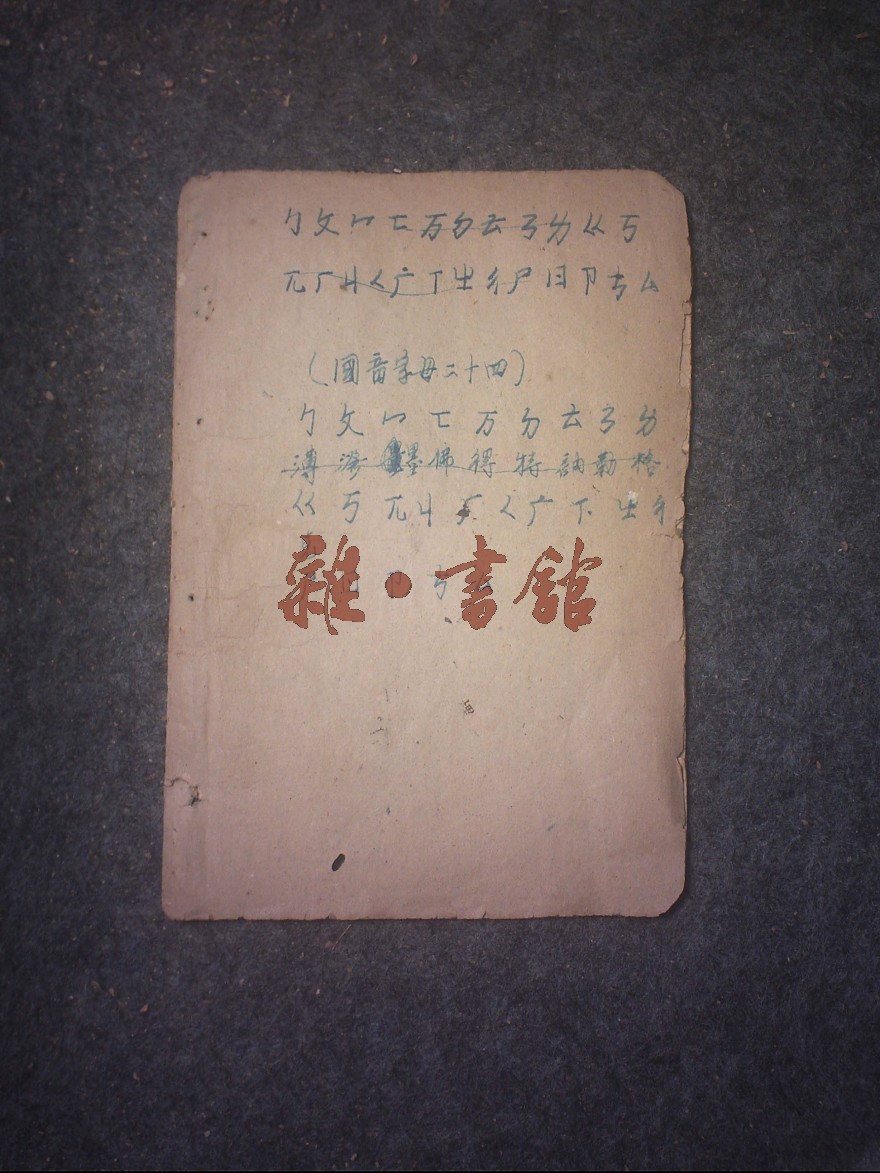 ㄅㄆㄇㄈ万ㄉㄊㄋㄌㄍㄎ
兀ㄏㄐㄑ广ㄒㄓㄔㄕㄖㄗㄘㄙ
(國音字母二十四)
ㄅㄆㄇㄈ万ㄉㄊㄋㄌ
溥潑墨佛得特訥勒格
ㄍㄎ兀ㄐㄏㄑ广ㄒㄓㄔ
ㄗㄘ
雜·書館